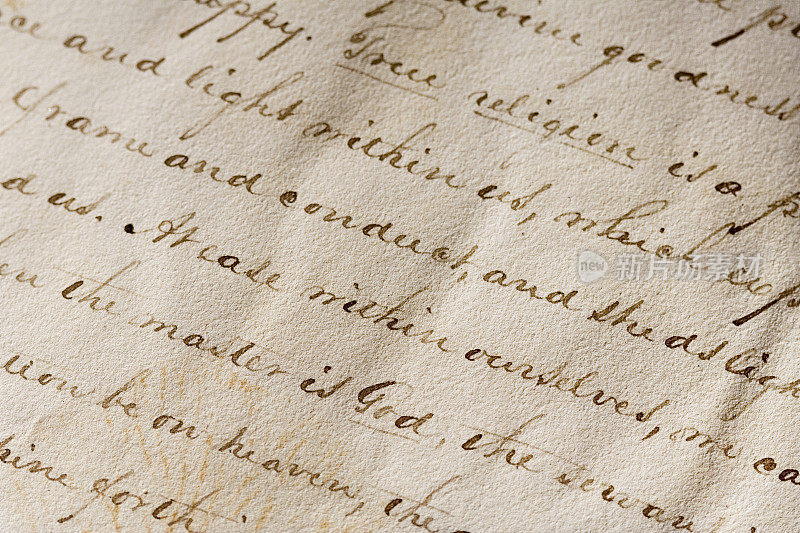 a p
divine goodness
happy. True religion is a p
ce and light within us, which disp
frame and conduct, and sheds ligh
d us. At ease within ourselves, we ca
the master is God, the servan
be on heaven, the
hine forth
new 新片场图库